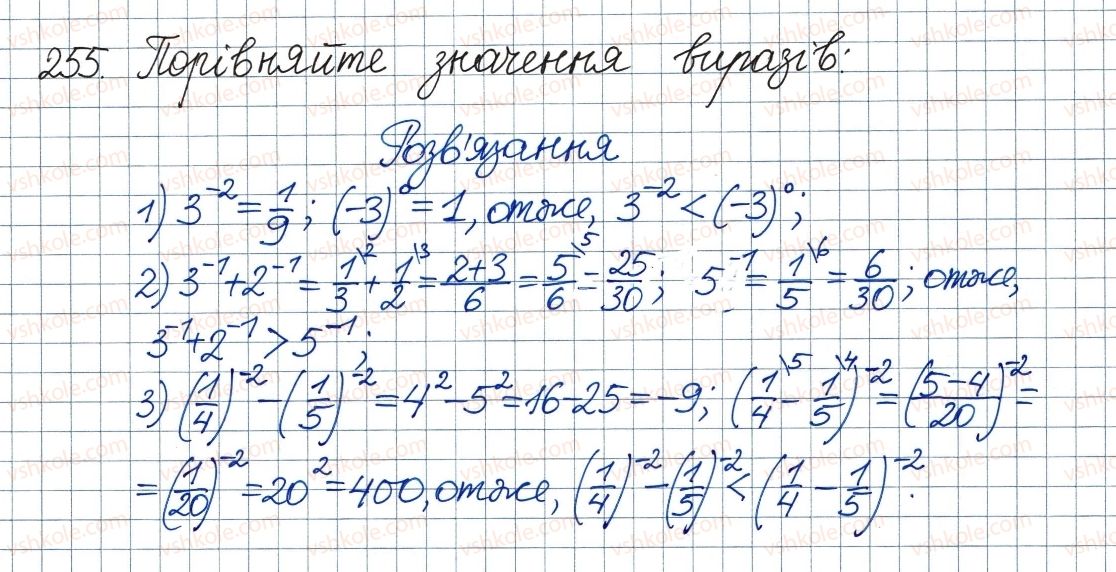 255. Порівняйте значення виразів:
Розв'язання
1) 3⁻² = 1/9; (-3)⁰ = 1, отже, 3⁻² < (-3)⁰;
2) 3⁻¹ + 2⁻¹ = 1/3\2 + 1/2\3 = (2+3)/6 = 5/6\5 = 25/30; 5⁻¹ = 1/5\6 = 6/30; отже,
3⁻¹ + 2⁻¹ > 5⁻¹;
3) (1/4)⁻² - (1/5)⁻² = 4² - 5² = 16 - 25 = -9; (1/4\5 - 1/5\4)⁻² = ((5-4)/20)⁻² =
= (1/20)⁻² = 20² = 400, отже, (1/4)⁻² - (1/5)⁻² < (1/4 - 1/5)⁻².